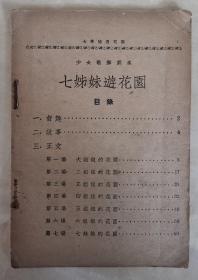 七姊妹遊花園
少女歌舞劇本
七姊妹遊花園
目錄
一. 前題 2
二. 故事 4
三. 正文
第一場 大姐姐的花園
第二場 二姐姐的花園
第三場 三姐姐的花園
第四場 四姐姐的花園
第五場 五姐姐的花園
第六場 六姐姐的花園
第七場 七妹妹的花園